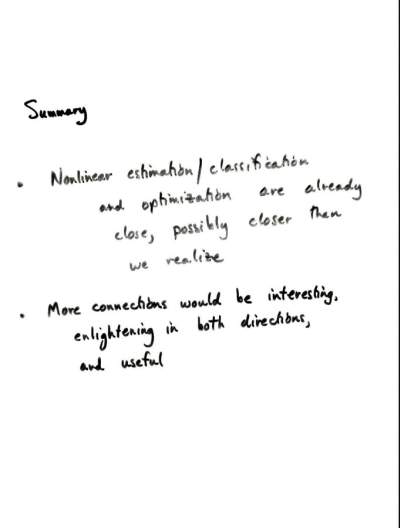 Summary
• Nonlinear estimation/classification
and optimization are already
close, possibly closer than
we realize
• More connections would be interesting,
enlightening in both directions,
and useful